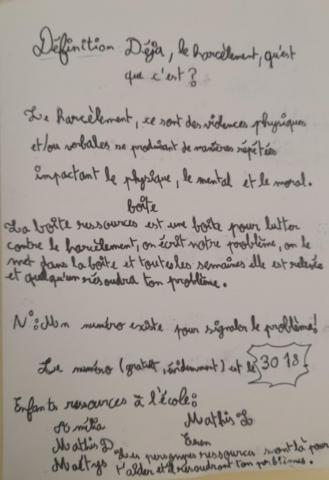 Définition Déjà, le harcèlement, qu'est
que c'est ?
Le harcèlement, ce sont des violences physiques
et/ou verbales se produisant de manières répétées
impactant le physique, le mental et le moral.
boîte
La boîte ressources est une boîte pour lutter
contre le harcèlement, on écrit notre problème, on le
met dans la boîte et toutes les semaines elle est relevée
et quelqu'un résoudra ton problème.
N°: Un numéro existe pour signaler le problème!
Le numéro (gratuit, évidemment) est le 3018
Enfants ressources à l'école:
Amélia Mathis L
Mathis D Eren
Maëlys Les personnes ressources sont là pour
t'aider et résoudront ton problèmes.